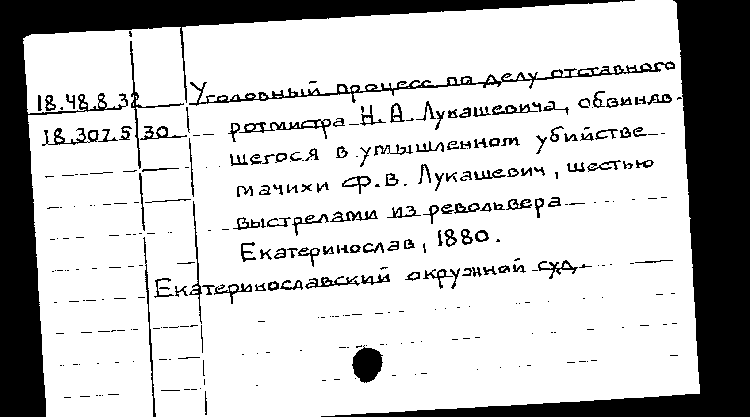 18.48.8.32 Уголовный процесс по делу отставного
18.307.5.30 ротмистра Н.А. Лукашевича, обвиняв-
шегося в умышленном убийстве
мачихи Ф.В. Лукашевич, шестью
выстрелами из револьвера
Екатеринослав, 1880.
Екатеринославский окружной суд.